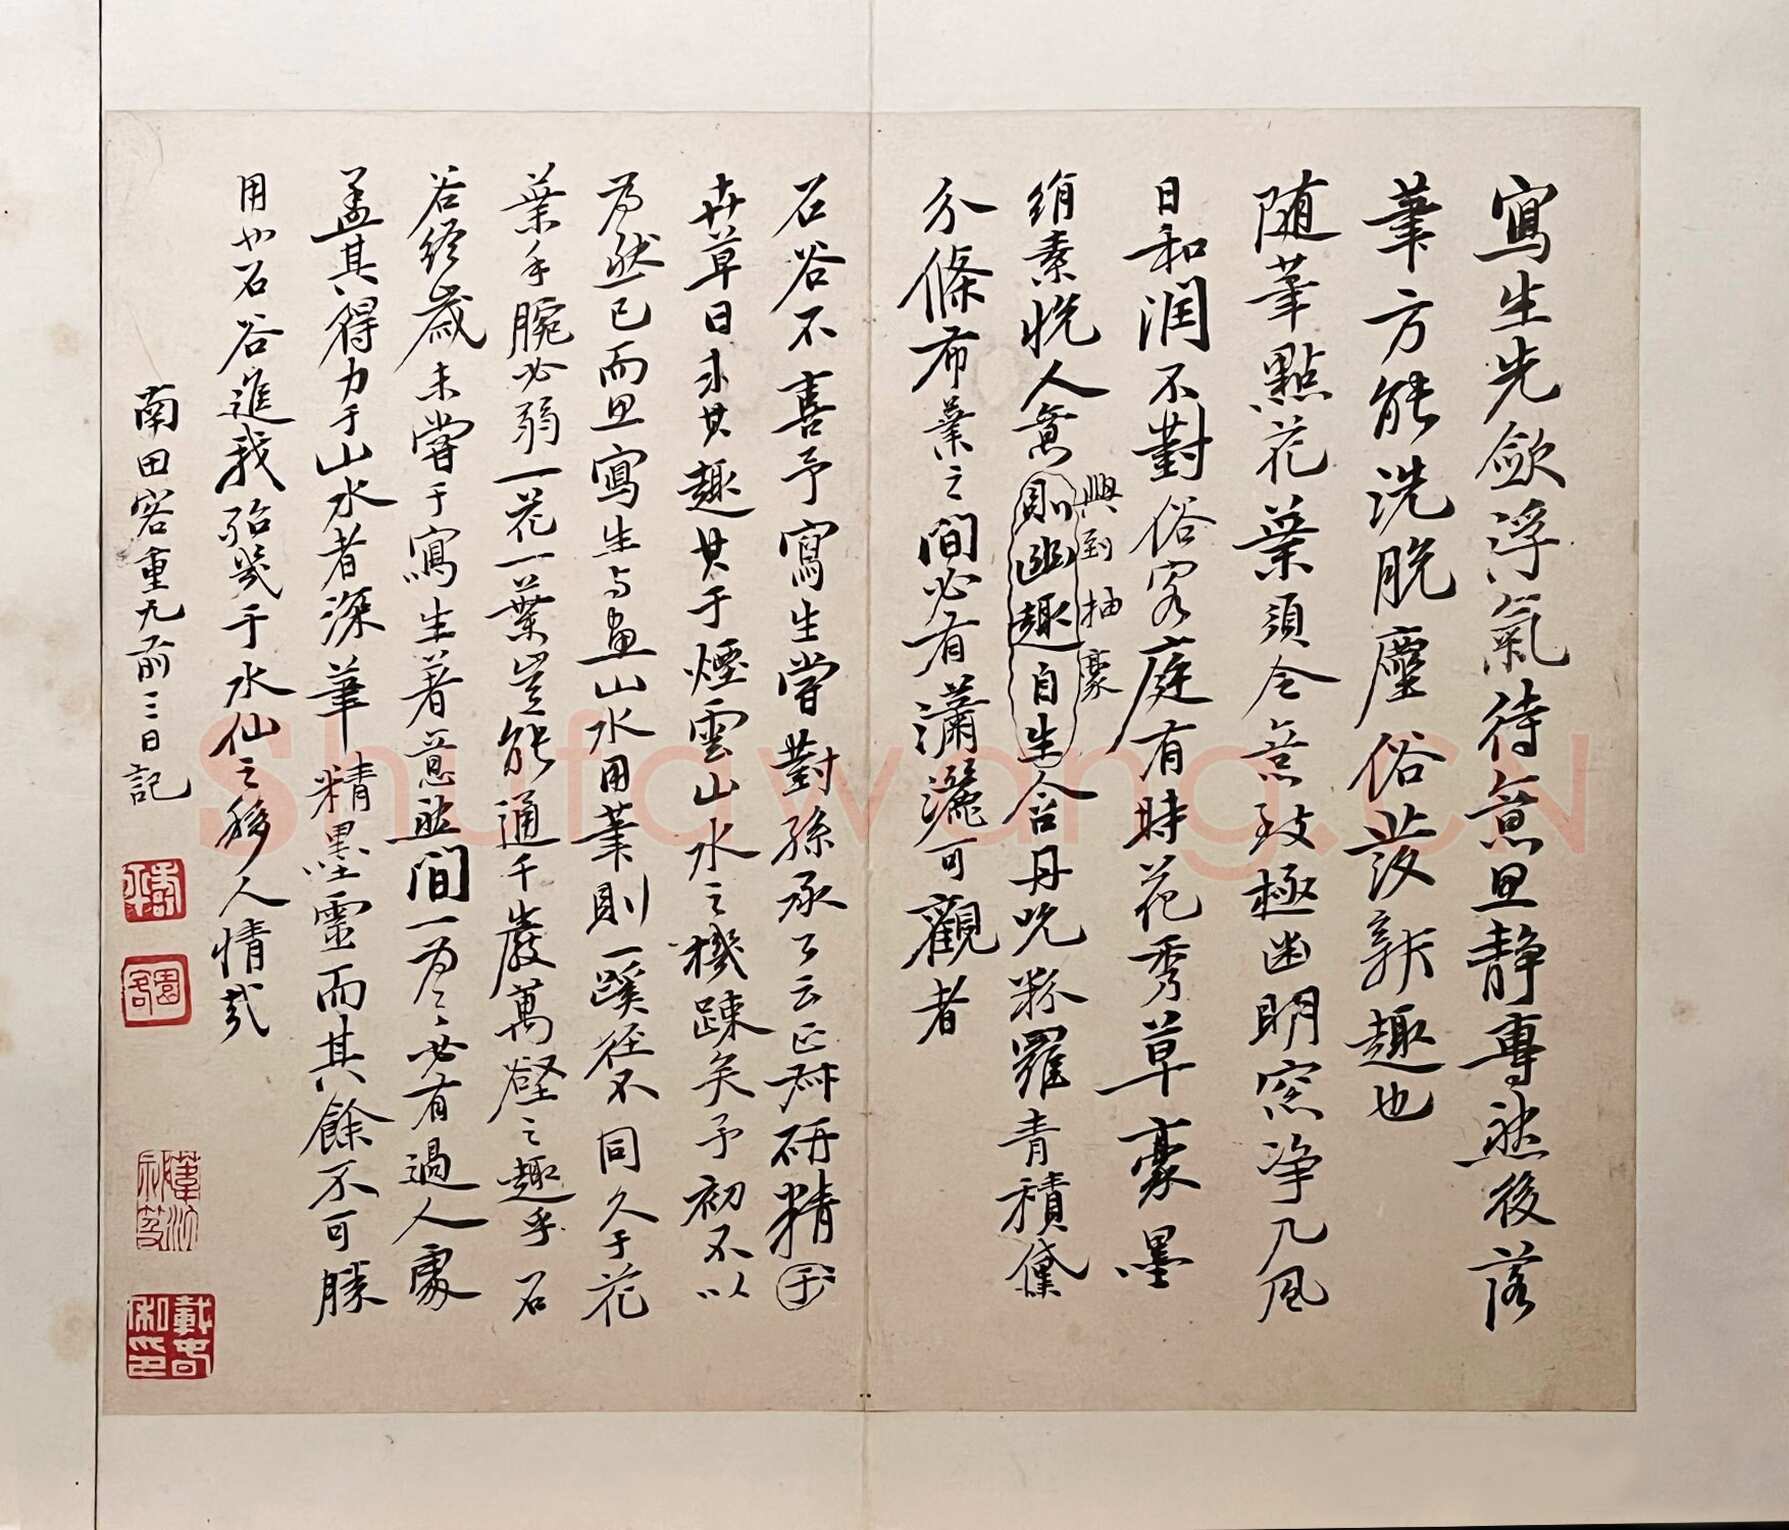 寫生先斂浮氣待意思静專然後落
筆方能洗脫塵俗發新趣也
隨筆點花葉須令意致極幽明窓净几風
日和潤不對俗客庭有時花秀草豪墨
絹素恱人意則幽趣自生含丹吮粉羅青積黛
興到抽豪
分條布葉之間必有瀟灑可觀者
石谷不喜予寫生嘗對孫承公云正叔研精于
卉草日求其趣其于煙雲山水之機疎矣予初不以
為然已而思寫生与畫山水用筆則一蹊徑不同久于花
葉手腕必弱一花一葉豈能通千巖萬壑之趣乎石
谷終歲未嘗于寫生著意然間一為之必有過人處
盖其得力于山水者深筆精墨靈而其餘不可勝
用也石谷進我殆幾于水仙之移人情哉
南田客重九前三日記
壽平
園客
戴勢和印
shufawang.cn